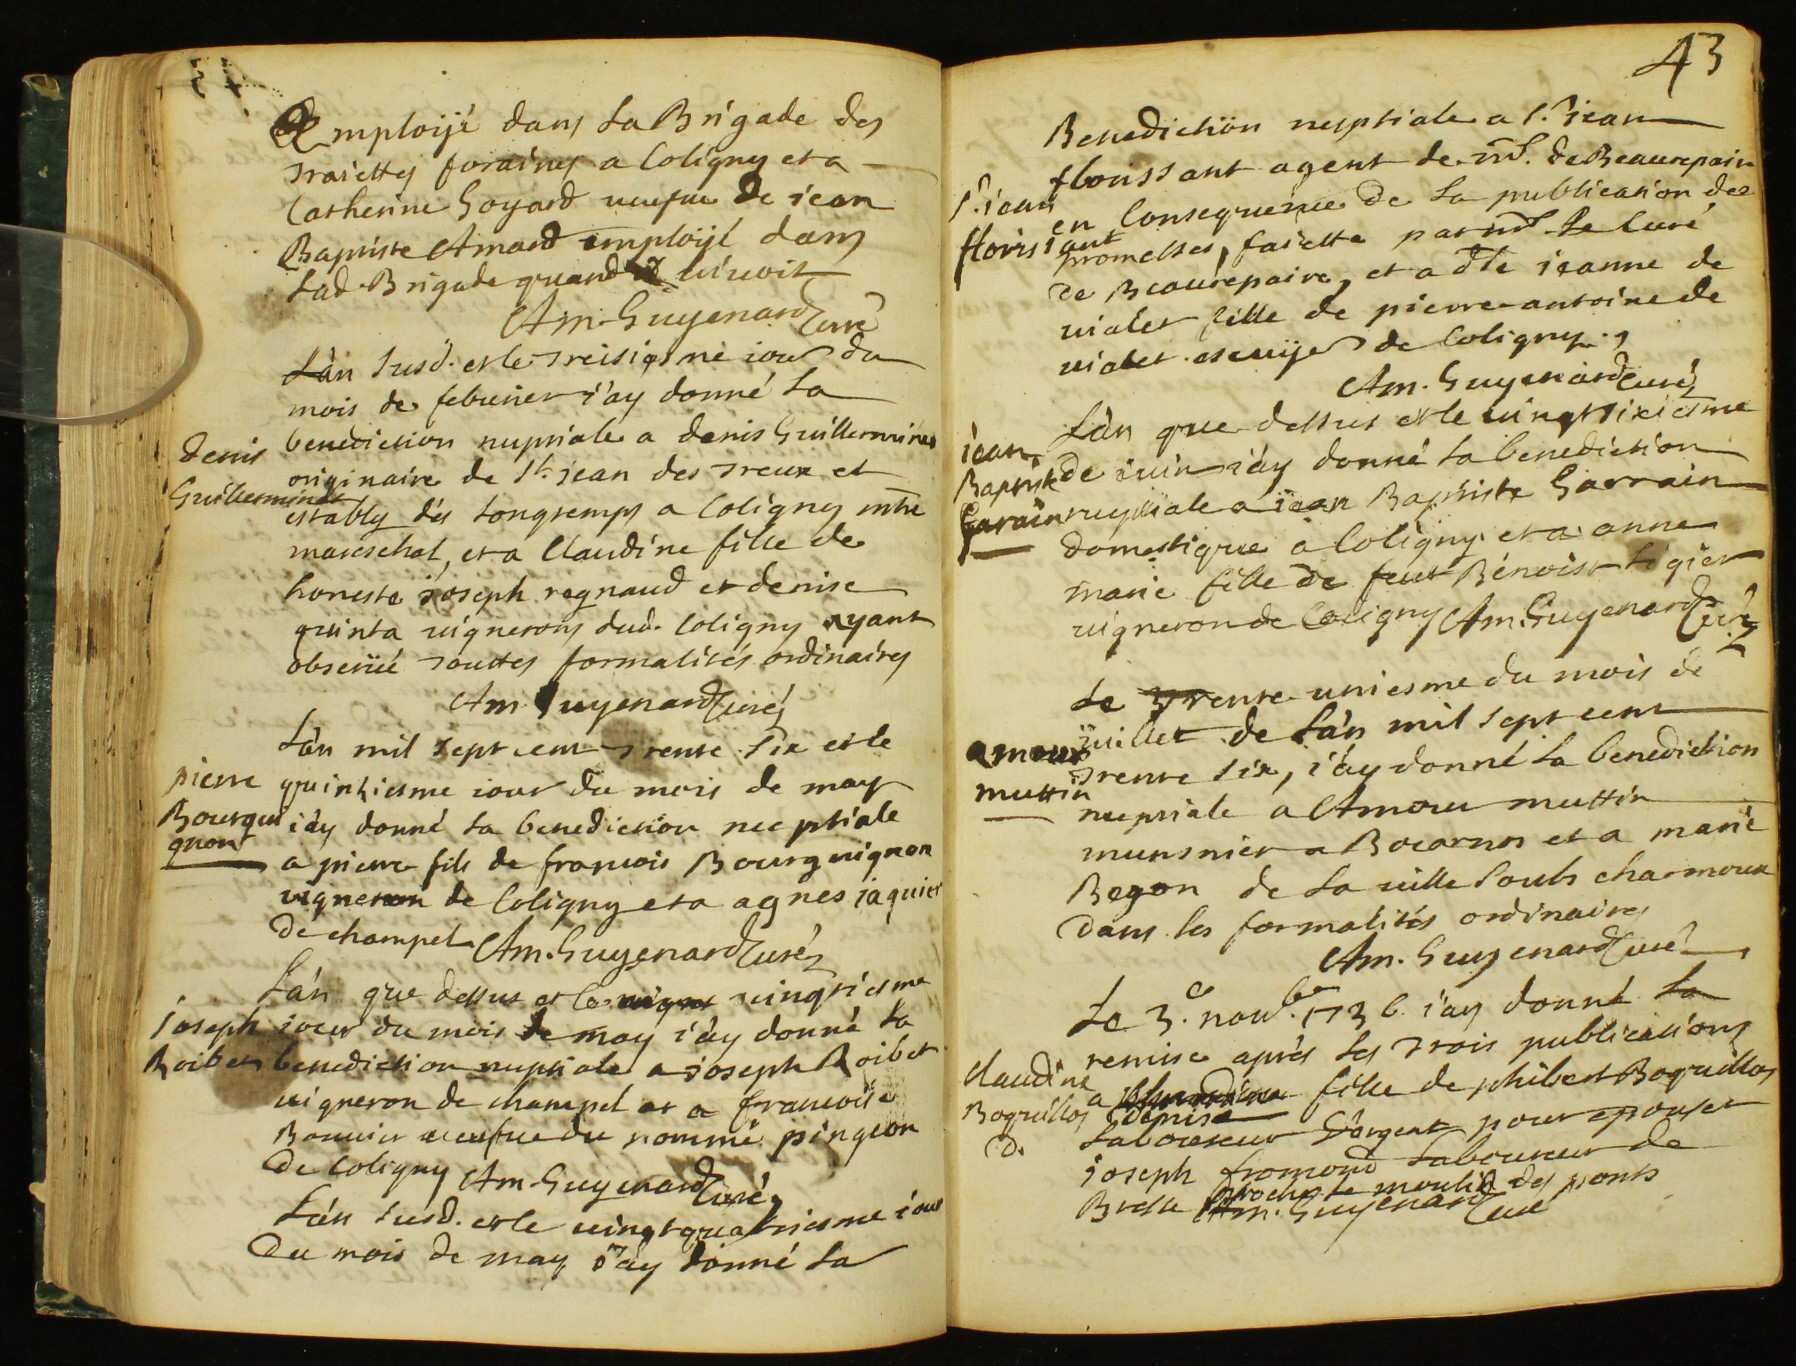 Emploijé dans La Brigade des
traiettes foraines a Coligny et a
Catherine Goyard veufue De jean
Baptiste Amard emploijé dans
Lad. Brigade quand il uiuoit
Am. Guyenard Curé
L'an susd. et le treisiesme iour du
mois de feburier i'ay donné La
denis
benediction nuptiale a denis Guillerminet
Guillerminet
originaire de St. jean des treux et
estably dès longtemps a Coligny mtre
mareschal, et a Claudine fille de
honeste joseph regnaud et denise
quinta uignerons dud. Coligny ayant
obserüé touttes formalités ordinaires
Am Guyenard Curé
L'an mil sept cent trente six et le
pierre
quinziesme iour du mois de may
Bourgui
gnon
i'ay donné La benediction nuptiale
a pierre fils de francois Bourguignon
vigneron de Coligny et a agnes jaquier
De champel Am. Guyenard Curé
L'an que dessus et le uingtiesme
joseph
iour du mois de may i'ay donné La
Roibet
benediction nuptiale a joseph Roibet
uigneron de champel et a francoise
Bouuier ueufue du nommé pingeon
De Coligny Am. Guyenard Curé
L'an susd. et le uingtquatriesme iour
Du mois de may j'ay donné La
43
Benediction nuptiale a Sr. jean
florissant agent de mr. de Beaurepaire
Sr. jean
florissant
en Consequence De La publication des
promesses, faiette par mr. Le Curé
de Beaurepaire, et a dlle jeanne de
uialet fille de pierre antoine de
uialet escuijer de Coligny.
Am. Guyenard Curé
L'an que dessus et le uingtsixiesme
jean
Baptiste
Garain
de iuin i'ay donné La benediction
nuptiale a jean Baptiste Garrain
domestique a Coligny et a anne
marie fille de feut Bénoist Ligier
uigneron de Coligny Am. Guyenard Curé
Le trente uniesme du mois de
juillet de L'an mil sept cent
amour
muttin
trente six, i'ay donné La benediction
nuptiale a Amour muttin
munsnier a Bocarnos et a marie
Begon de La uille soubs charmoux
Dans les formalités ordinaires
Am. Guyenard Curé
Le 3.e nov.bre 1736. i'ay donné La
remise après Les trois publications
Claudine
Boquillos
D.
a denise fille de philibert Boquillos
Laboureur D'argent pour epouser
joseph fromond Laboureur de
Bresse proche le moulin des ponts
Am. Guyenard Curé